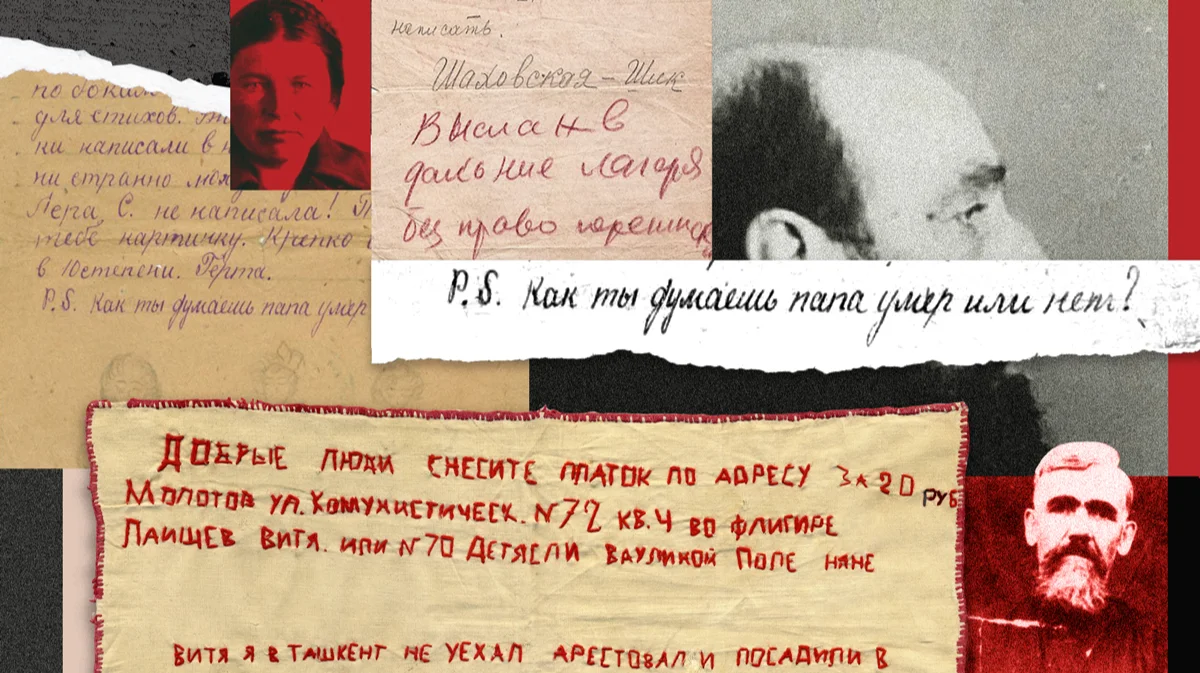 по бокам
для стихов.
ни написали в
ни странно
Лера С. не написала!
тебе картичку. Крепко
в 10 степени. Герта.
P.S. Как ты думаешь папа умер
написать.
Шаховская-Шик
Выслан в
дальние лагеря
без право
P.S. Как ты думаешь папа умер или нет?
ДОБРЫЕ ЛЮДИ СНЕСИТЕ ПЛАТОК ПО АДРЕСУ ЗА 20 РУБ
МОЛОТОВ УЛ. КОМУНИСТИЧЕСК. N72 КВ.4 ВО ФЛИГИРЕ
ЛАИЩЕВ ВИТЯ. ИЛИ N70 ДЕТЯСЛИ ВАУЛИНОЙ ПОЛЕ НЯНЕ
ВИТЯ Я В ТАШКЕНТ НЕ УЕХАЛ АРЕСТОВАЛИ ПОСАДИЛИ В